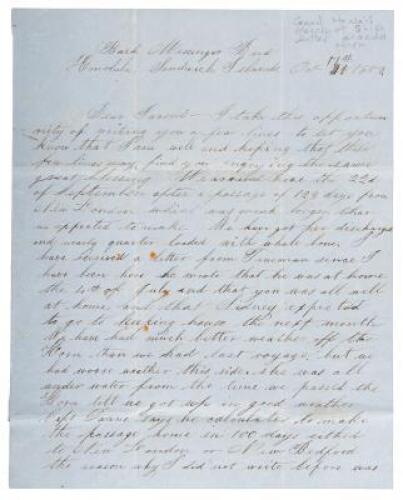 Bark Messenger Bird
Honolulu Sandwich Islands Oct 185
Dear Parents I take this opportu
nity of writing you a few lines to let you
know that I am well and hoping that these
few lines may find you enjoying the same
great blessing We arrived here the 22d
of September after a passage of 129 days from
New London which was much longer than
we expected to make We have got discharged
and nearly quarter loaded with whale bone I
have received a letter from since I
have been here he wrote that he was at home
the 4th of July and that you was all well
at home and that Sidney expected
to go to keeping house the next month
We have had much better weather off the
Horn than we had last voyage but we
had worse weather this side she was all
under water from the time we passed the
Horn till we got up in good weather
Capt says he calculates to make
the passage home in 100 days either
to New London or New Bedford
the reason why I did not write before was